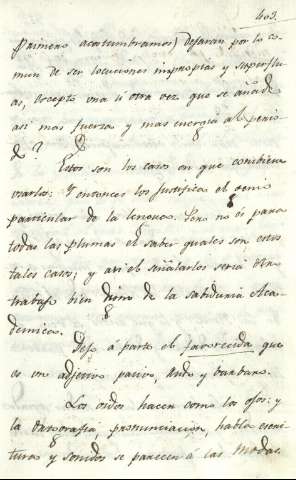 403.
Primero acostumbramos) dejaran por lo co-
mun de ser locuciones impropias y superflu-
as, excepto una ú otra vez que se añade
asi mas fuerza y mas energia al perio-
do?
Estos son los casos en que conviene
usarlos: Y entonces los justifica el genio
particular de la lengua. Pero no és para
todas las plumas el saber quales son estos
tales casos; y asi el señalarlos seria un
trabajo bien digno de la sabiduria Aca-
demica.
Dejo á parte el favorecida que
es un adjetivo pasivo, y barbaro.
Los oidos hacen como los ojos: y
la ortografia, pronunciacion, habla escri-
turas y sonidos se parecen á las modas.